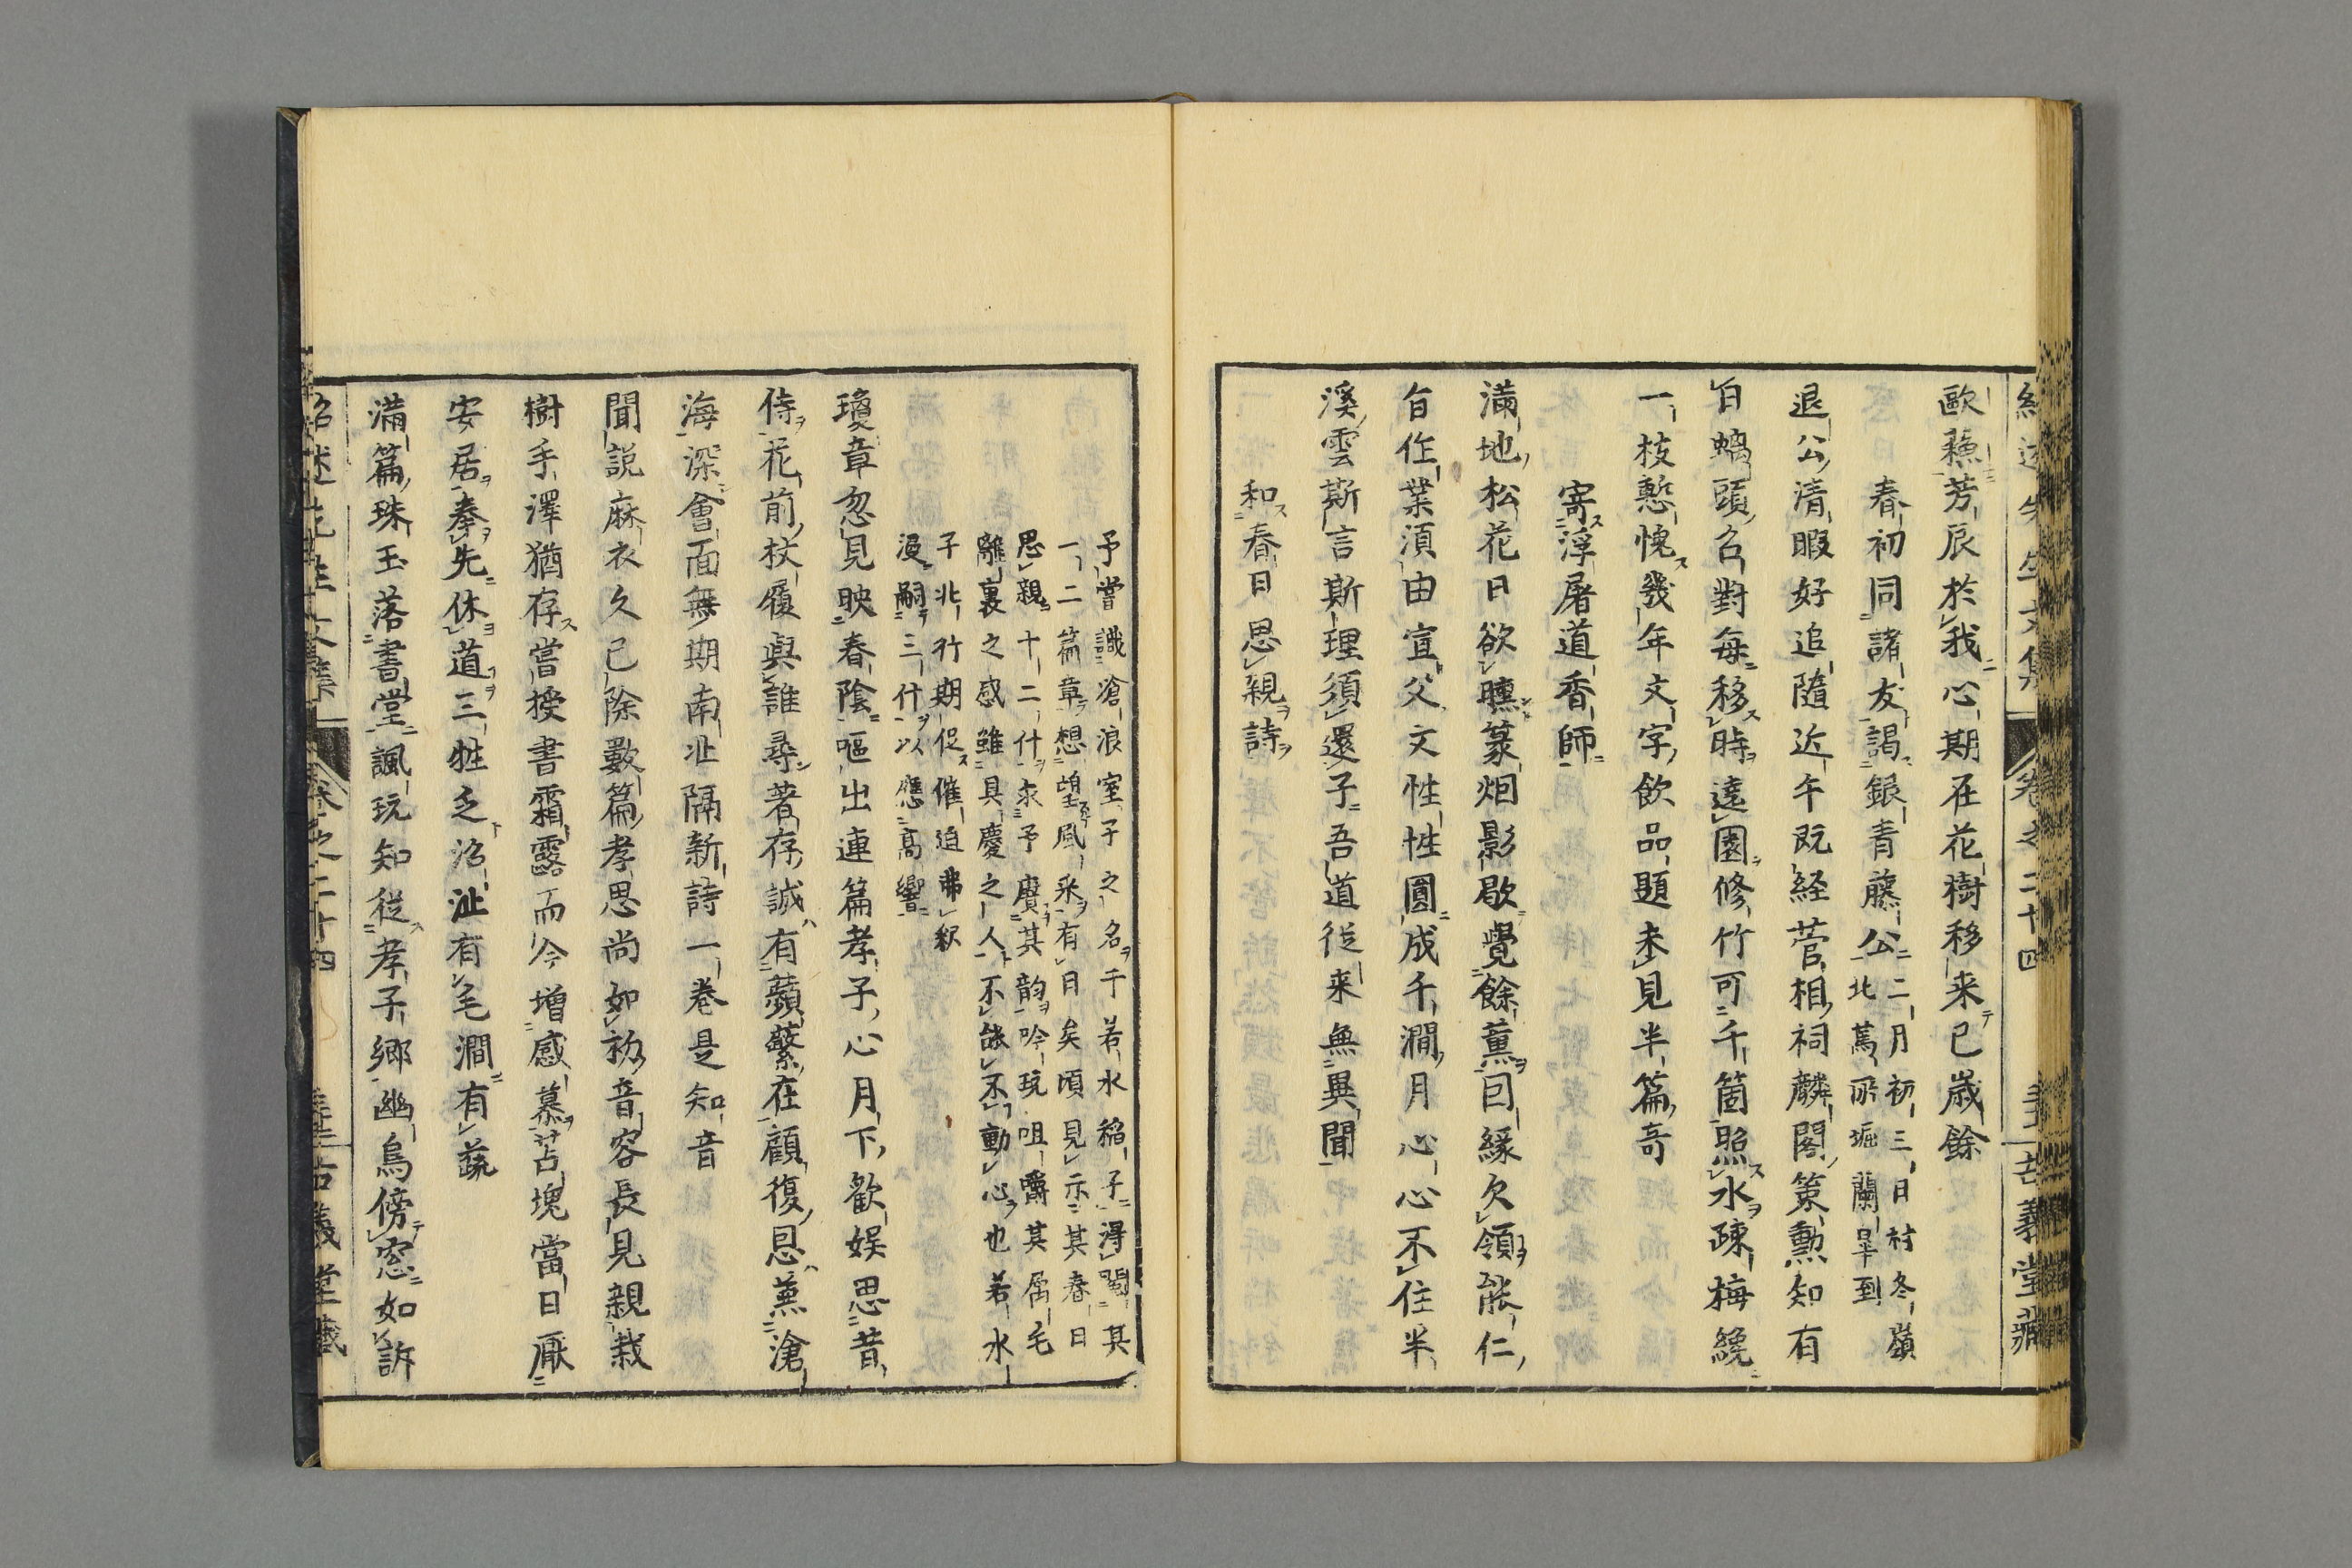 紹述先生文集 卷之二十四 古義堂藏
歐蘓芳辰於我心期在花樹移来已歳餘
春初同諸友謁銀青藤公二月初三日村冬嶺
北篤所堀蘭皐到
退公清暇好追隨近午既経菅相祠麟閣策勲知有
自螭頭名對毎移時遶園修竹可千箇照水疎梅纔
一枝慙愧幾年文字飲品題未見半篇奇
寄浮屠道香師
滿地松花日欲曛篆烟影歇覺餘薫囙縁久領能仁
旨作業湏由宣父文性性圓成千澗月心心不住半
溪雲斯言斯理須還子吾道従来無異聞
和春日思親詩
予嘗識滄浪室子之名于若水稲子得閲其
一二篇章想望風采有日矣頃見示其春日
思親十二什求予賡其韵吟玩咀嚼其属毛
離裏之感雖具慶之人不能不動心也若水
子北行期促催迫弗釈
漫嗣三什以應髙響
瓊章忽見映春陰嘔出連篇孝子心月下歓娯思昔
侍花前杖履與誰尋著存誠有蘋蘩在顧復恩蒹滄
海深會面無期南北隔新詩一巻是知音
聞説麻衣久已除數篇孝思尚如初音容長見親栽
樹手澤猶存嘗授書霜露而今增感慕苫塊當日厭
安居奉先休道三牲乏沼沚有毛澗有蔬
滿篇珠玉落書堂諷玩知従孝子郷幽鳥傍窓如訴
紹述先生文集 卷之二十四 古義堂藏